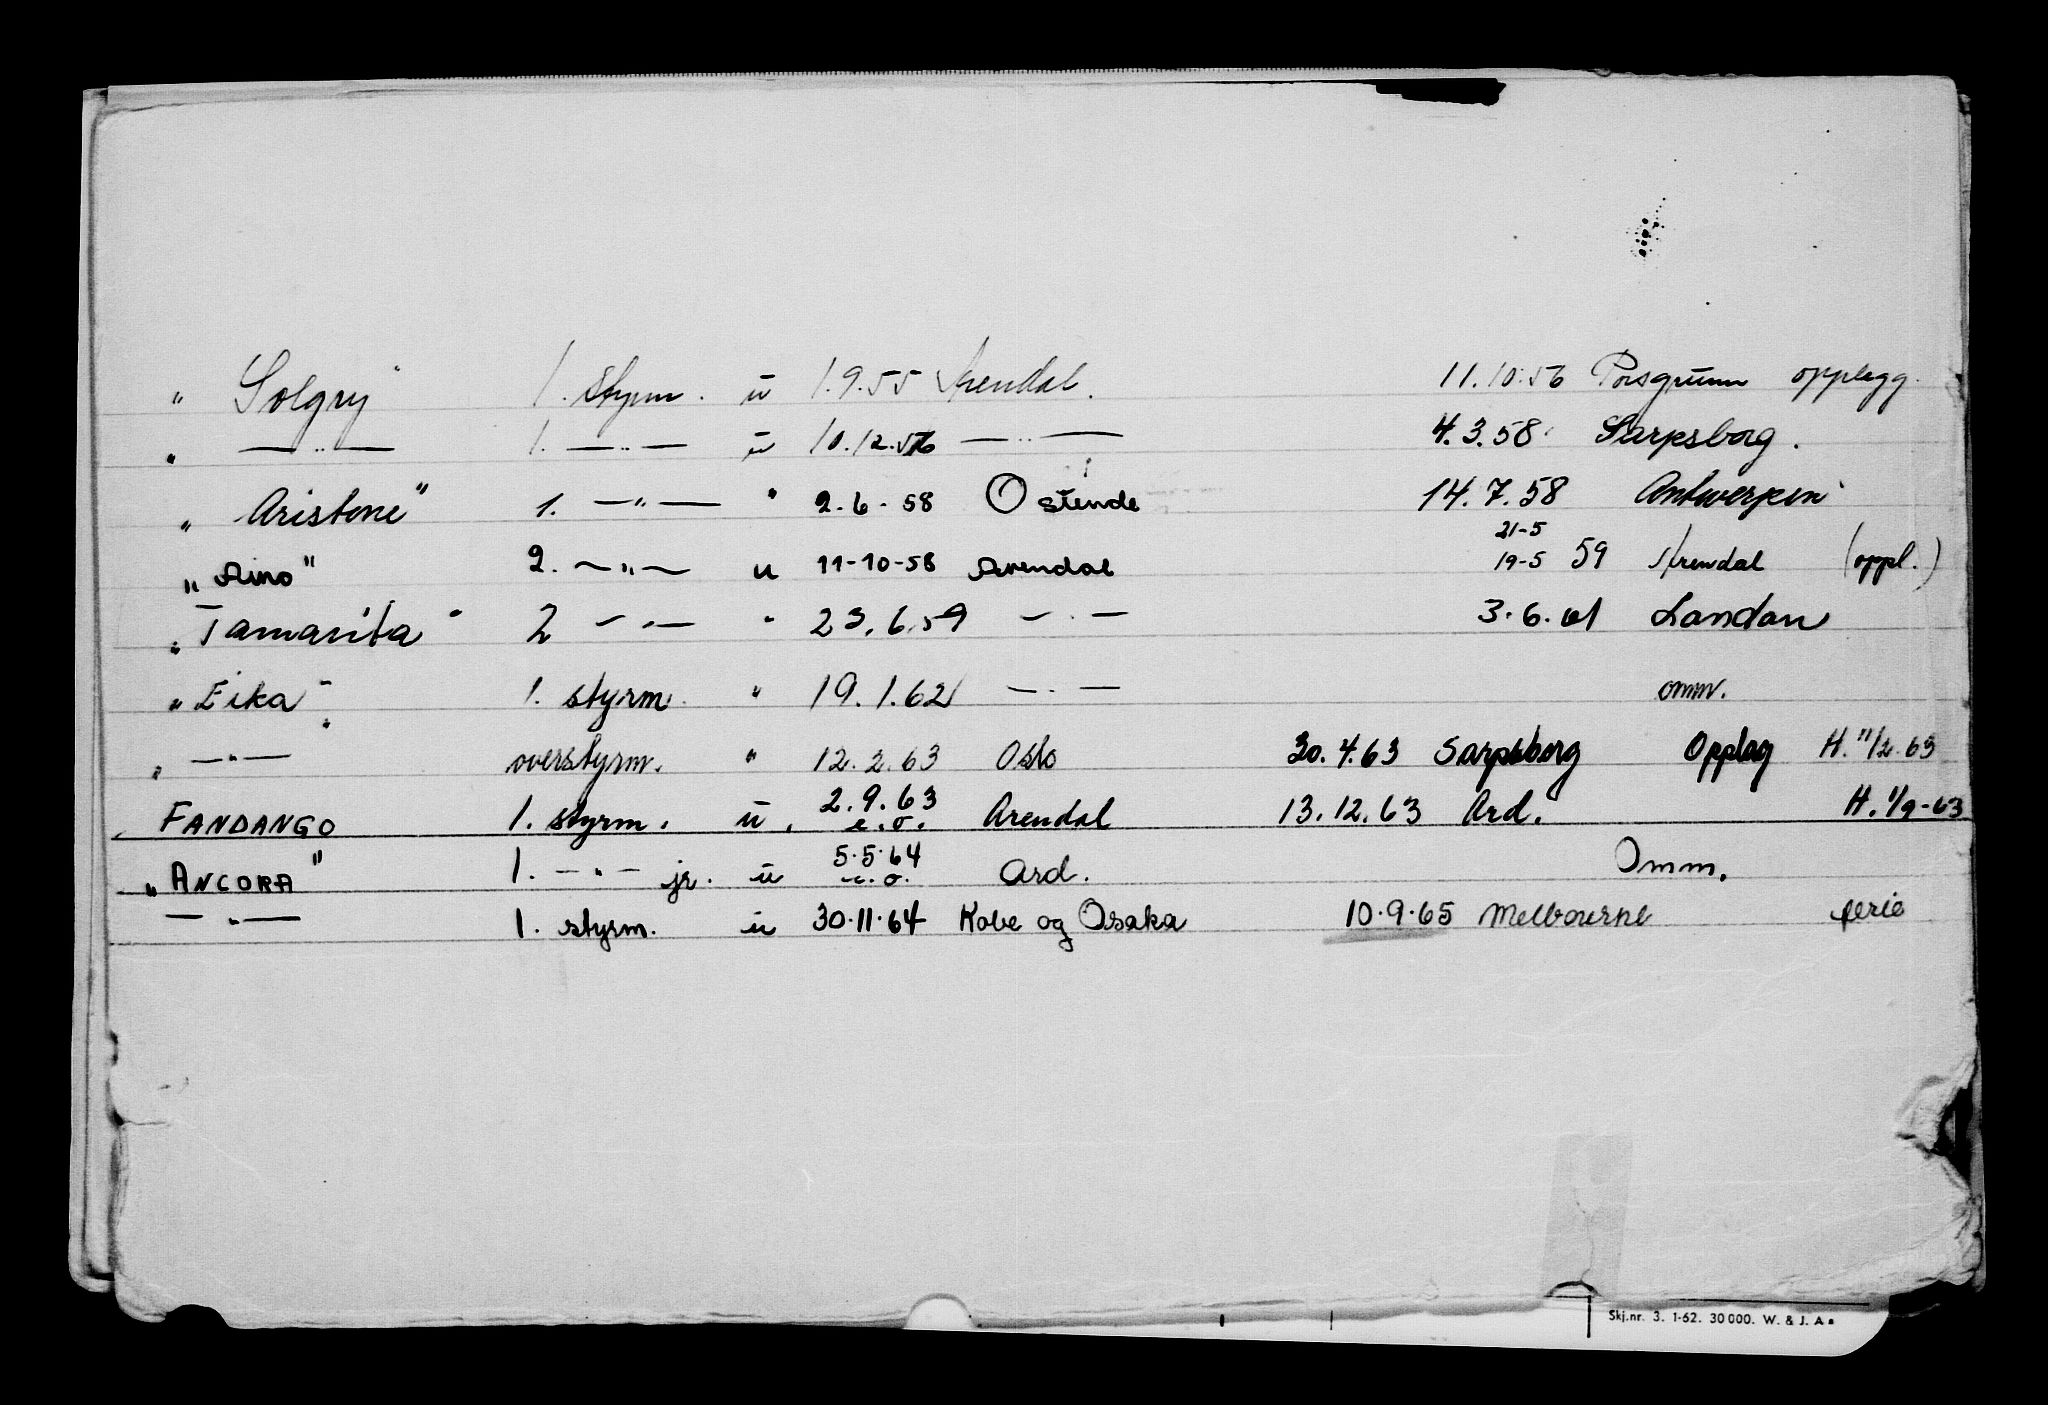 " Solgry" 1. Styrm. u 1.9.55 Arendal. 11.10.56 Porsgrunn opplegg.
" — " — 1. — " — u 10.12.56 — " — 4.3.58 Sarpsborg.
" Aristone" 1. — " — " 2.6.58 Ostende 14.7.58 Antwerpen
21-5
" Aino" 2. — " — u 11-10-58 Arendal 19-5 59 Arendal (oppl.)
" Tamarita" 2 — " — " 23.6.59 — " — 3.6.61 Landan
" Eika" 1. styrm. " 19.1.62 — " — omm.
" — " — overstyrm. " 12.2.63 Oslo 30.4.63 Sarpsborg Opplag H. 11/2.63
FANDANGO 1. styrm. u. 2.9.63 e.o. Arendal 13.12.63 Ard. H. 1/9-63
" ANCORA" 1. — " — jr. u 5.5.64 e.o. Ard. Omm.
— " — 1. styrm. u 30.11.64 Kobe og Osaka 10.9.65 Melbourne ferie
Skj.nr. 3. 1-62. 30 000. W. & J. A s